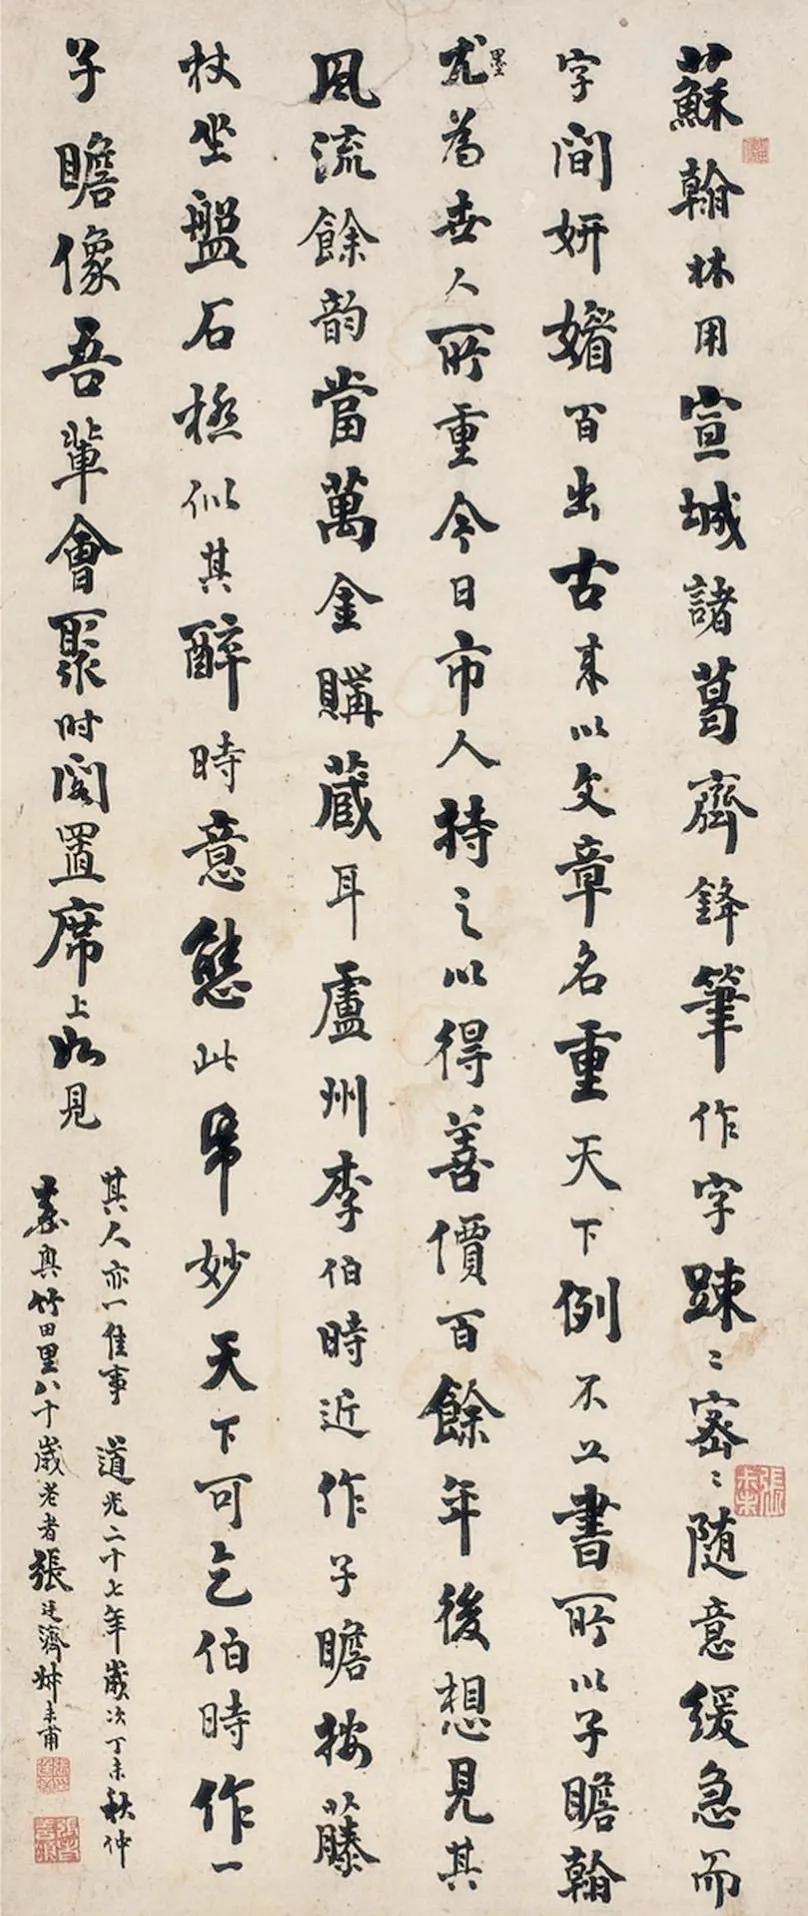 蘇翰林用宣城諸葛齊鋒筆作字踈〻密〻随意緩急而
字間妍媚百出古来以文章名重天下例不工書所以子瞻翰
墨尤為世人所重今日市人持之以得善價百餘年後想見其
風流餘韵當萬金購蔵耳盧州李伯時近作子瞻按藤
杖坐盤石極似其醉時意態此帋妙天下可乞伯時作一
子瞻像吾輩會聚时開置席上如見
其人亦一佳事 道光二十七年歲次丁未秋仲
嘉興竹田里八十歲老者張廷濟叔未甫
張叔未